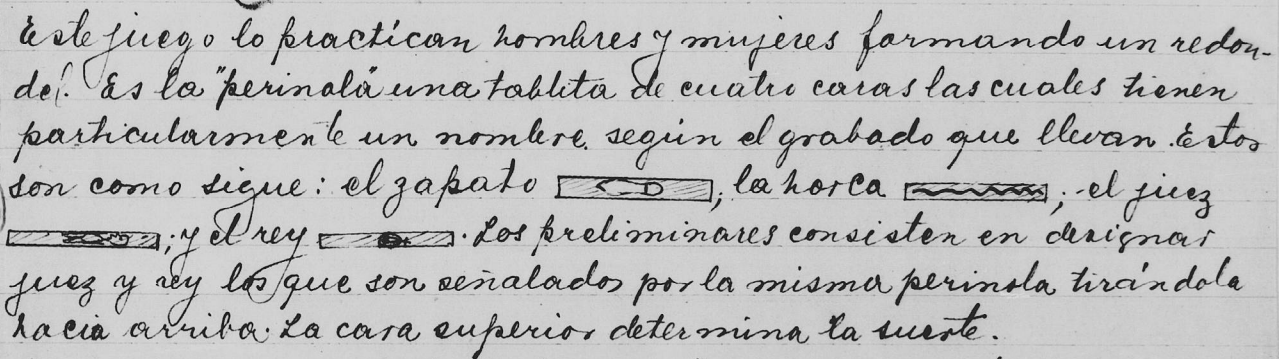 Este juego lo practican hombres y mujeres formando un redon-
del. Es la "perinola" una tablita de cuatro caras las cuales tienen
particularmente un nombre según el grabado que llevan. Estos
son como sigue: el zapato ; la horca ; el juez
; y el rey . Los preliminares consisten en designar
juez y rey los que son señalados por la misma perinola tirándola
hacia arriba. La cara superior determina la suerte.